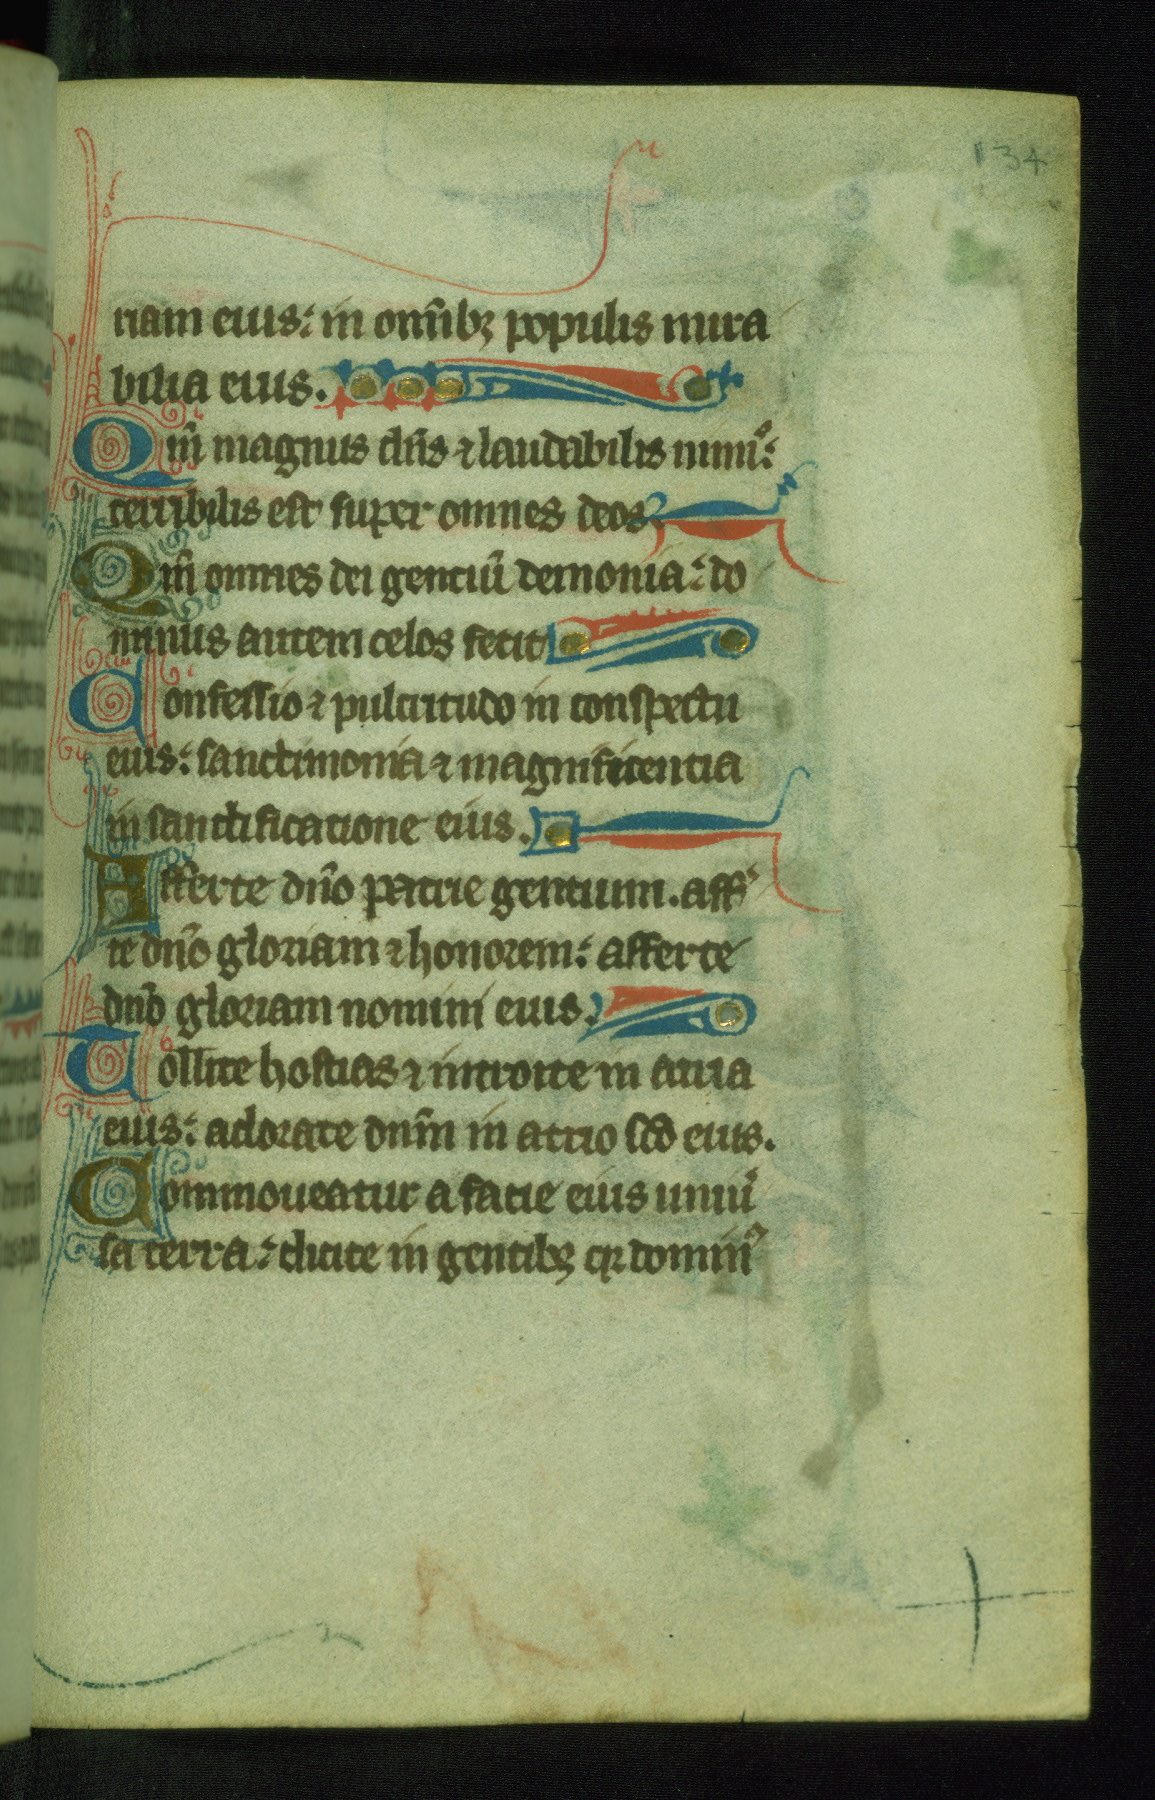 134
riam eius: in om̄ibꝫ populis mira
bilia eius.
Qm̄ magnus dn̄s ⁊ laudabilis nimiͦ:
terribilis est super omnes deos.
Qm̄ omnes dei gentiū demonia: do
minus autem celos fecit
Confessio ⁊ pulcritudo in conspectu
eius: sanctimonia ⁊ magnificentia
in sanctificatione eius.
Afferte dn̄o patrie gentium. aff̾
te dn̄o gloriam ⁊ honorem: afferte
dn̄o gloriam nomini eius.
Tollite hostias ⁊ introite in atria
eius: adorate dn̄m in atrio sc̄o eius.
Commoueatur a facie eius uniu̾
sa terra: dicite in gentibꝫ qr domin᷒